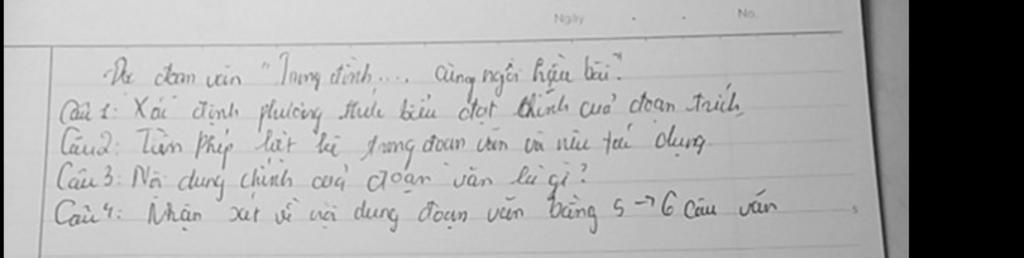 Ngày No.
Đọc đoạn văn "Trong đình.... cùng ngồi hầu bài".
Câu 1: Xác định phương thức biểu đạt chính của đoạn trích
Câu 2: Tìm phép liệt kê trong đoạn văn và nêu tác dụng
Câu 3: Nội dung chính của đoạn văn là gì?
Câu 4: Nhận xét về nội dung đoạn văn bằng 5 → 6 câu văn